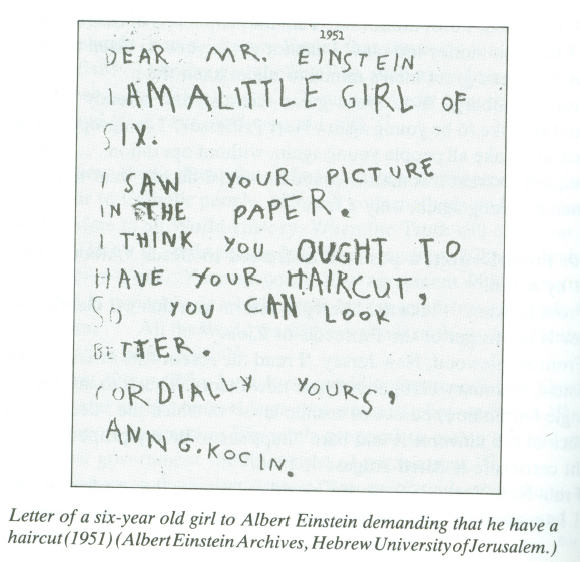 1951
DEAR MR. EINSTEIN
I AM A LITTLE GIRL OF
SIX.
I SAW YOUR PICTURE
IN THE PAPER.
I THINK YOU OUGHT TO
HAVE YOUR HAIRCUT,
SO YOU CAN LOOK
BETTER.
CORDIALLY YOURS,
ANN G. KOCIN.
Letter of a six-year old girl to Albert Einstein demanding that he have a
haircut (1951) (Albert Einstein Archives, Hebrew University of Jerusalem.)